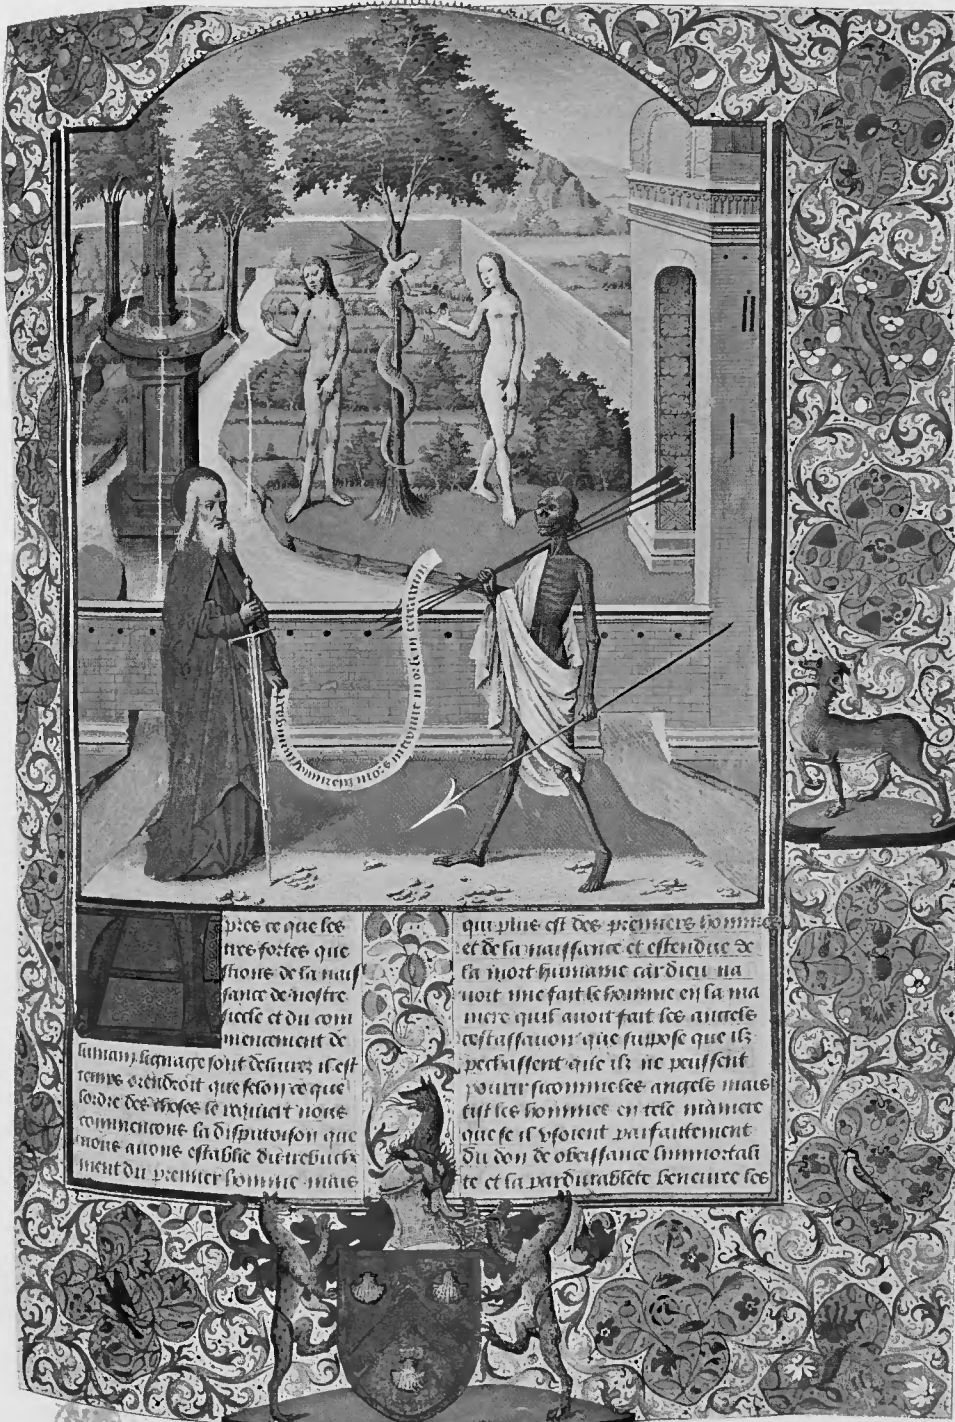 per peccatum hominem mors
pres ce que les
tres fortes que
stions de la nais
sance de nostre
siecle et du com
mencement de
lumain lignage sont deliurez il est
temps orendroit que selon ce que
lordre des choses le requiert nous
commencons la disputoison que
nous auons establie du trebuche
ment du premier homme mais
qui plus est des premiers hommes
et de la naissance et estendue de
la mort humaine car dieu na
uoit mie fait le homme en la ma
niere quil auoit fait les angels
cestassauoir que suppose que ilz
pechassent que ilz ne peussent
pourir sicomme les angels mais
fist les hommes en tele maniere
que se il vsoient parfaittement
du don de obeissance limmortali
te et la pardurablete beneuree les